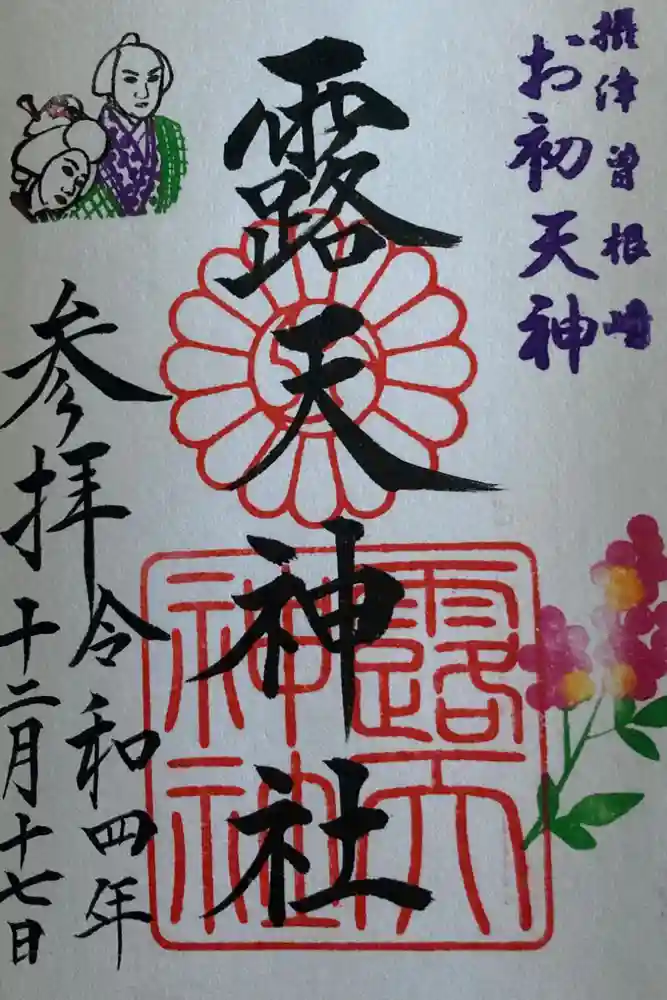 摂津曽根崎
お初天神
露天神社
参拝
令和四年
十二月十七日
露天
神社